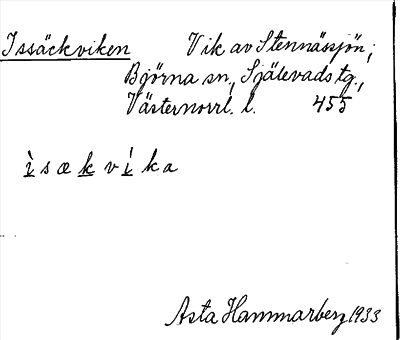 Issäckviken Vik av Stennässjön;
Björna sn., Själevads tg.,
Västernorrl. l. 455
ì̲ s æ k̲ v í̲ k a
Asta Hammarberg 1933